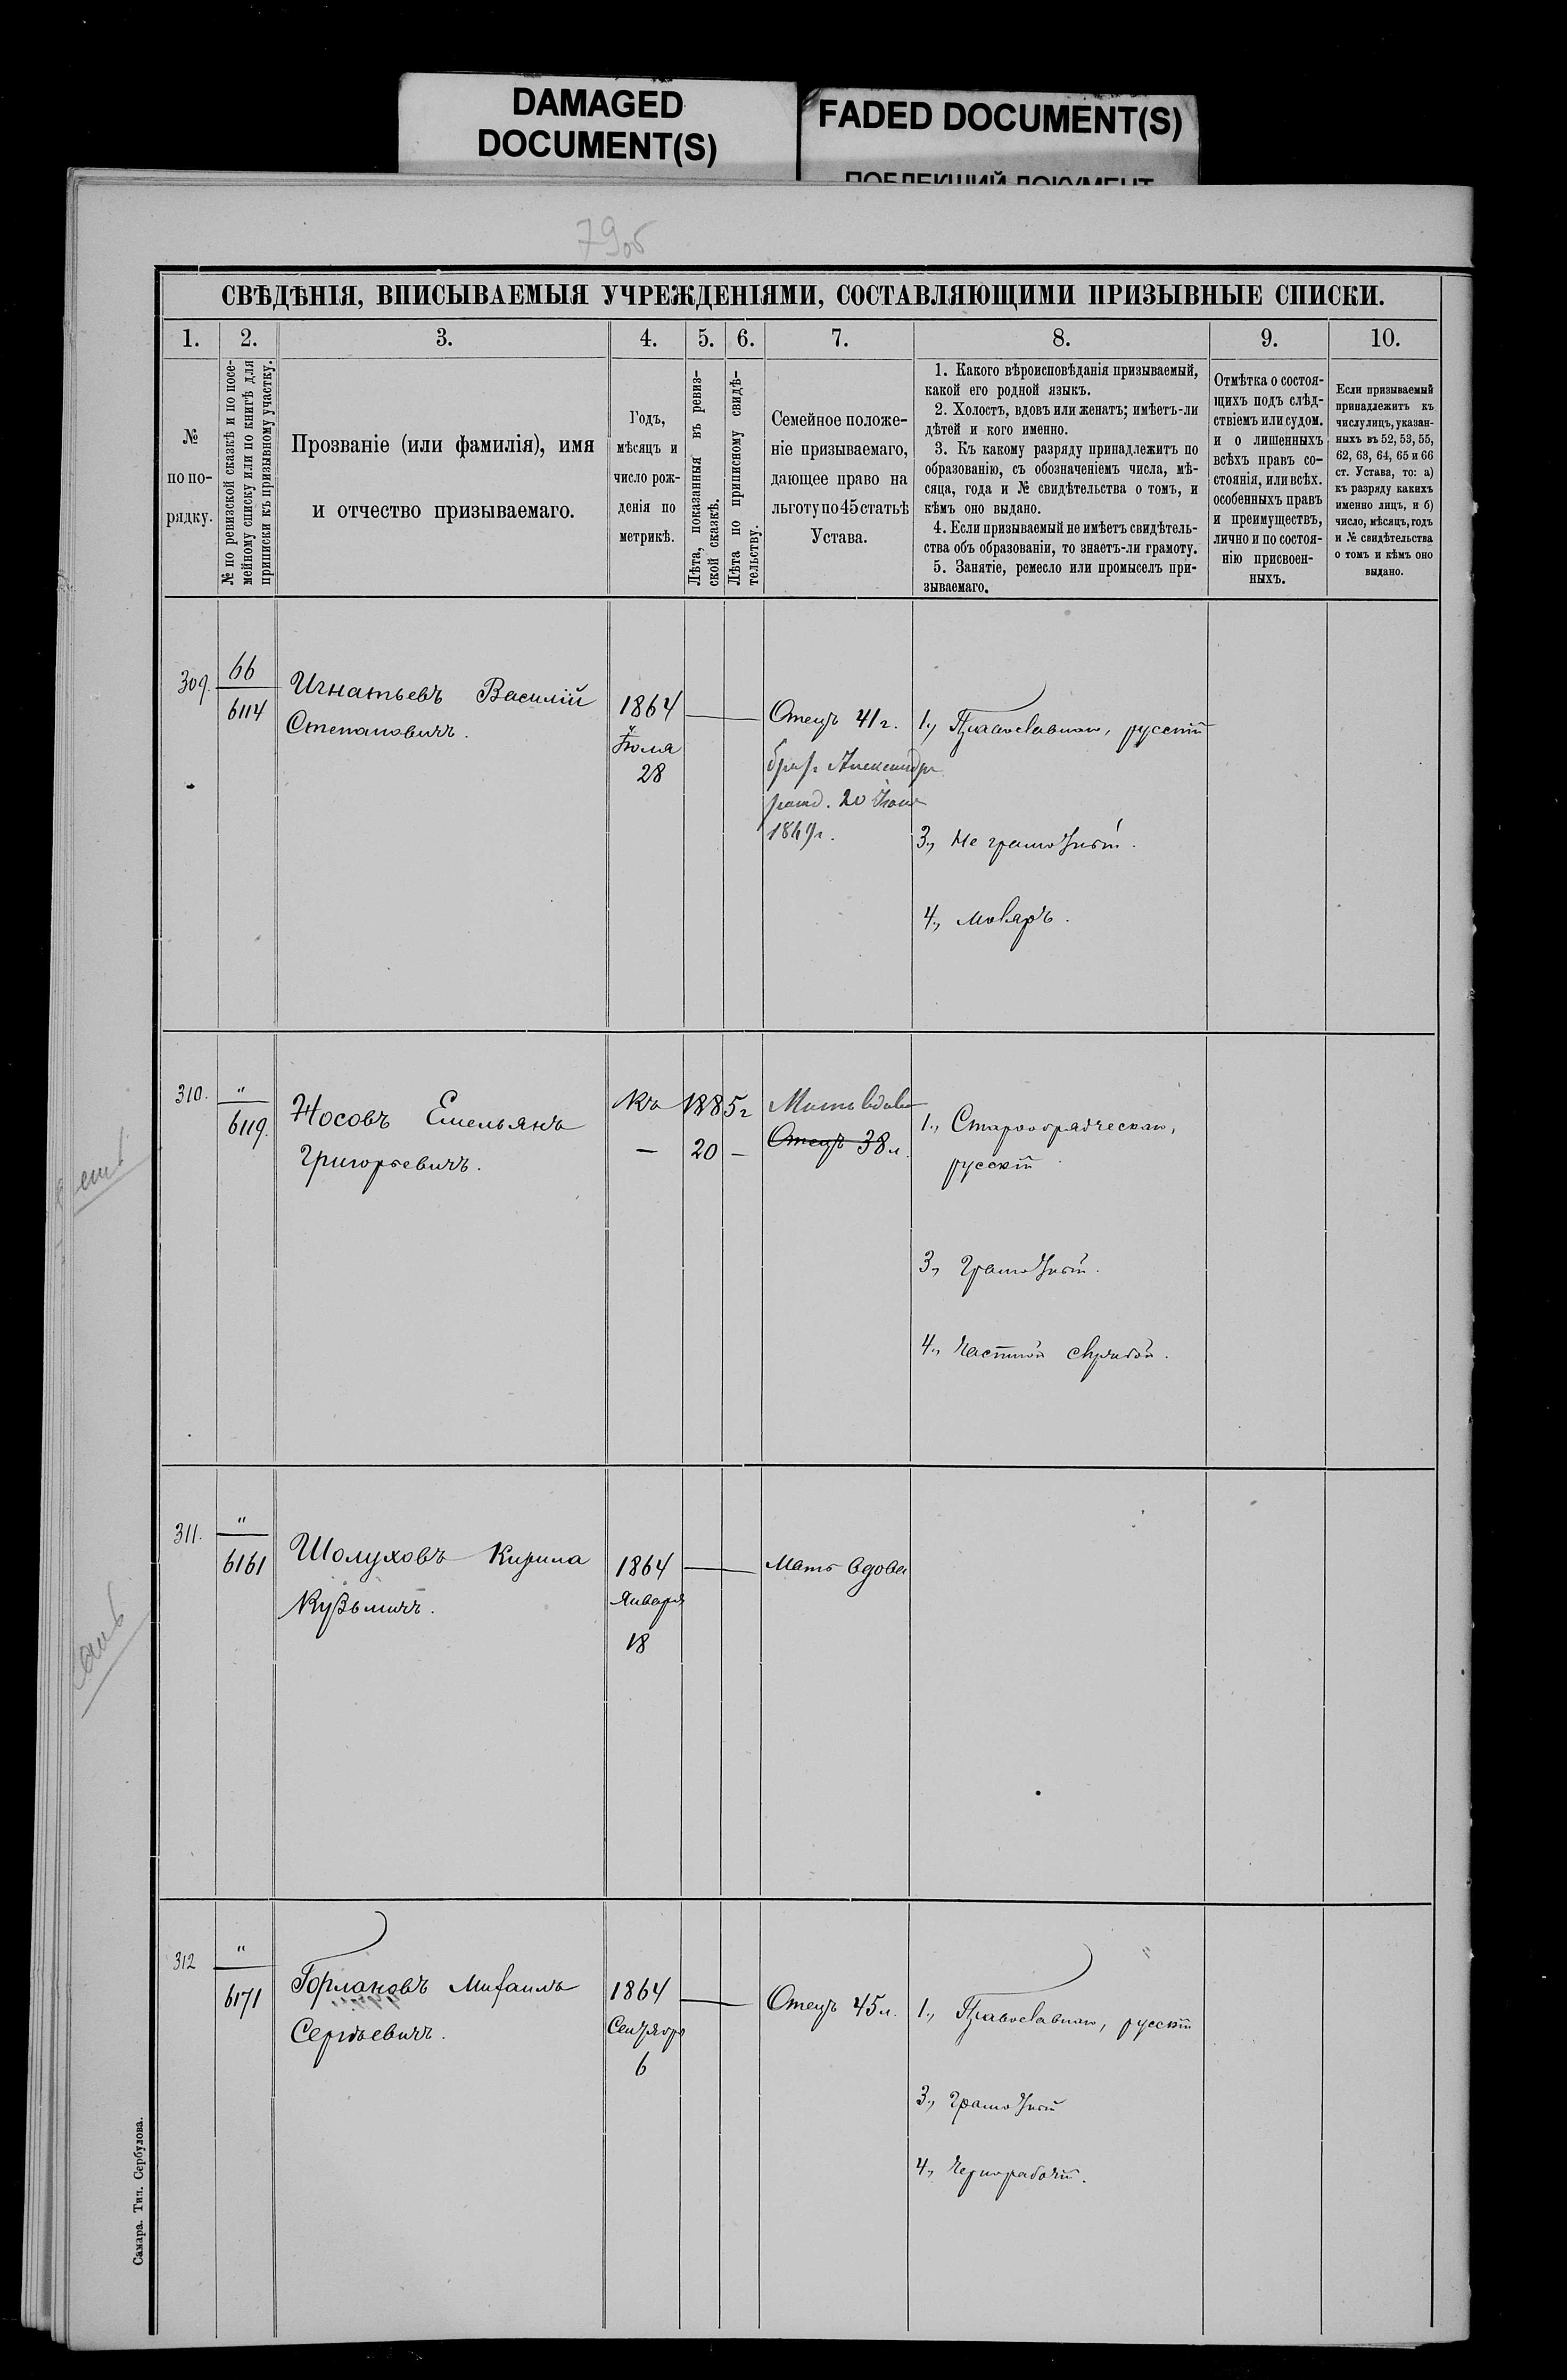 DAMAGED
DOCUMENT(S)
FADED DOCUMENT(S)
ПОБЛЕКШИЙ ДОКУМЕНТ
79об
СВѢДѢНІЯ, ВПИСЫВАЕМЫЯ УЧРЕЖДЕНІЯМИ, СОСТАВЛЯЮЩИМИ ПРИЗЫВНЫЕ СПИСКИ.
1. 2. 3. 4. 5. 6. 7. 8. 9. 10.
№
по по-
рядку.
№ по ревизской сказкѣ и по посе-
мейному списку или по книгѣ для
приписки къ призывному участку.
Прозваніе (или фамилія), имя
и отчество призываемаго.
Годъ,
мѣсяцъ и
число рож-
денія по
метрикѣ.
Лѣта, показанныя въ ревиз-
ской сказкѣ.
Лѣта по приписному свидѣ-
тельству.
Семейное положе-
ніе призываемаго,
дающее право на
льготу по 45 статьѣ
Устава.
1. Какого вѣроисповѣданія призываемый,
какой его родной языкъ.
2. Холостъ, вдовъ или женатъ; имѣетъ-ли
дѣтей и кого именно.
3. Къ какому разряду принадлежитъ по
образованію, съ обозначеніемъ числа, мѣ-
сяца, года и № свидѣтельства о томъ, и
кѣмъ оно выдано.
4. Если призываемый не имѣетъ свидѣтель-
ства объ образованіи, то знаетъ-ли грамоту.
5. Занятіе, ремесло или промыселъ при-
зываемаго.
Отмѣтка о состоя-
щихъ подъ слѣд-
ствіемъ или судом.
и о лишенныхъ
всѣхъ правъ со-
стоянія, или всѣх.
особенныхъ правъ
и преимуществъ,
лично и по состоя-
нію присвоен-
ныхъ.
Если призываемый
принадлежитъ къ
числу лицъ, указан-
ныхъ въ 52, 53, 55,
62, 63, 64, 65 и 66
ст. Устава, то: а)
къ разряду какихъ
именно лицъ, и б)
число, мѣсяцъ, годъ
и № свидѣтельства
о томъ и кѣмъ оно
выдано.
309.
66
6114
Игнатьевъ Василій
Степановичъ.
1864
28
Отецъ 41 г.
братъ Александръ
1869г.
1., Православнаго, русскій
3., Не грамотный.
4., маляръ.
310.
"
6119.
Носовъ Емельянъ
Григорьевичъ.
Къ 1885г
— 20 —
Мать вдова
Отецъ 38 л.
1., Старообрядческаго,
русскій
3., Грамотный.
4.,
311.
"
6161
Шолуховъ Кирила
Кузьмичъ.
1864
Января
18
Мать вдова
312
"
6171
Горлановъ Михаилъ
Сергѣевичъ.
1864
Сентября
6
Отецъ 45 л.
1., Православнаго, русскій
3., Грамотный
4., Чернорабочій.
Самара. Тип. Сербулова.